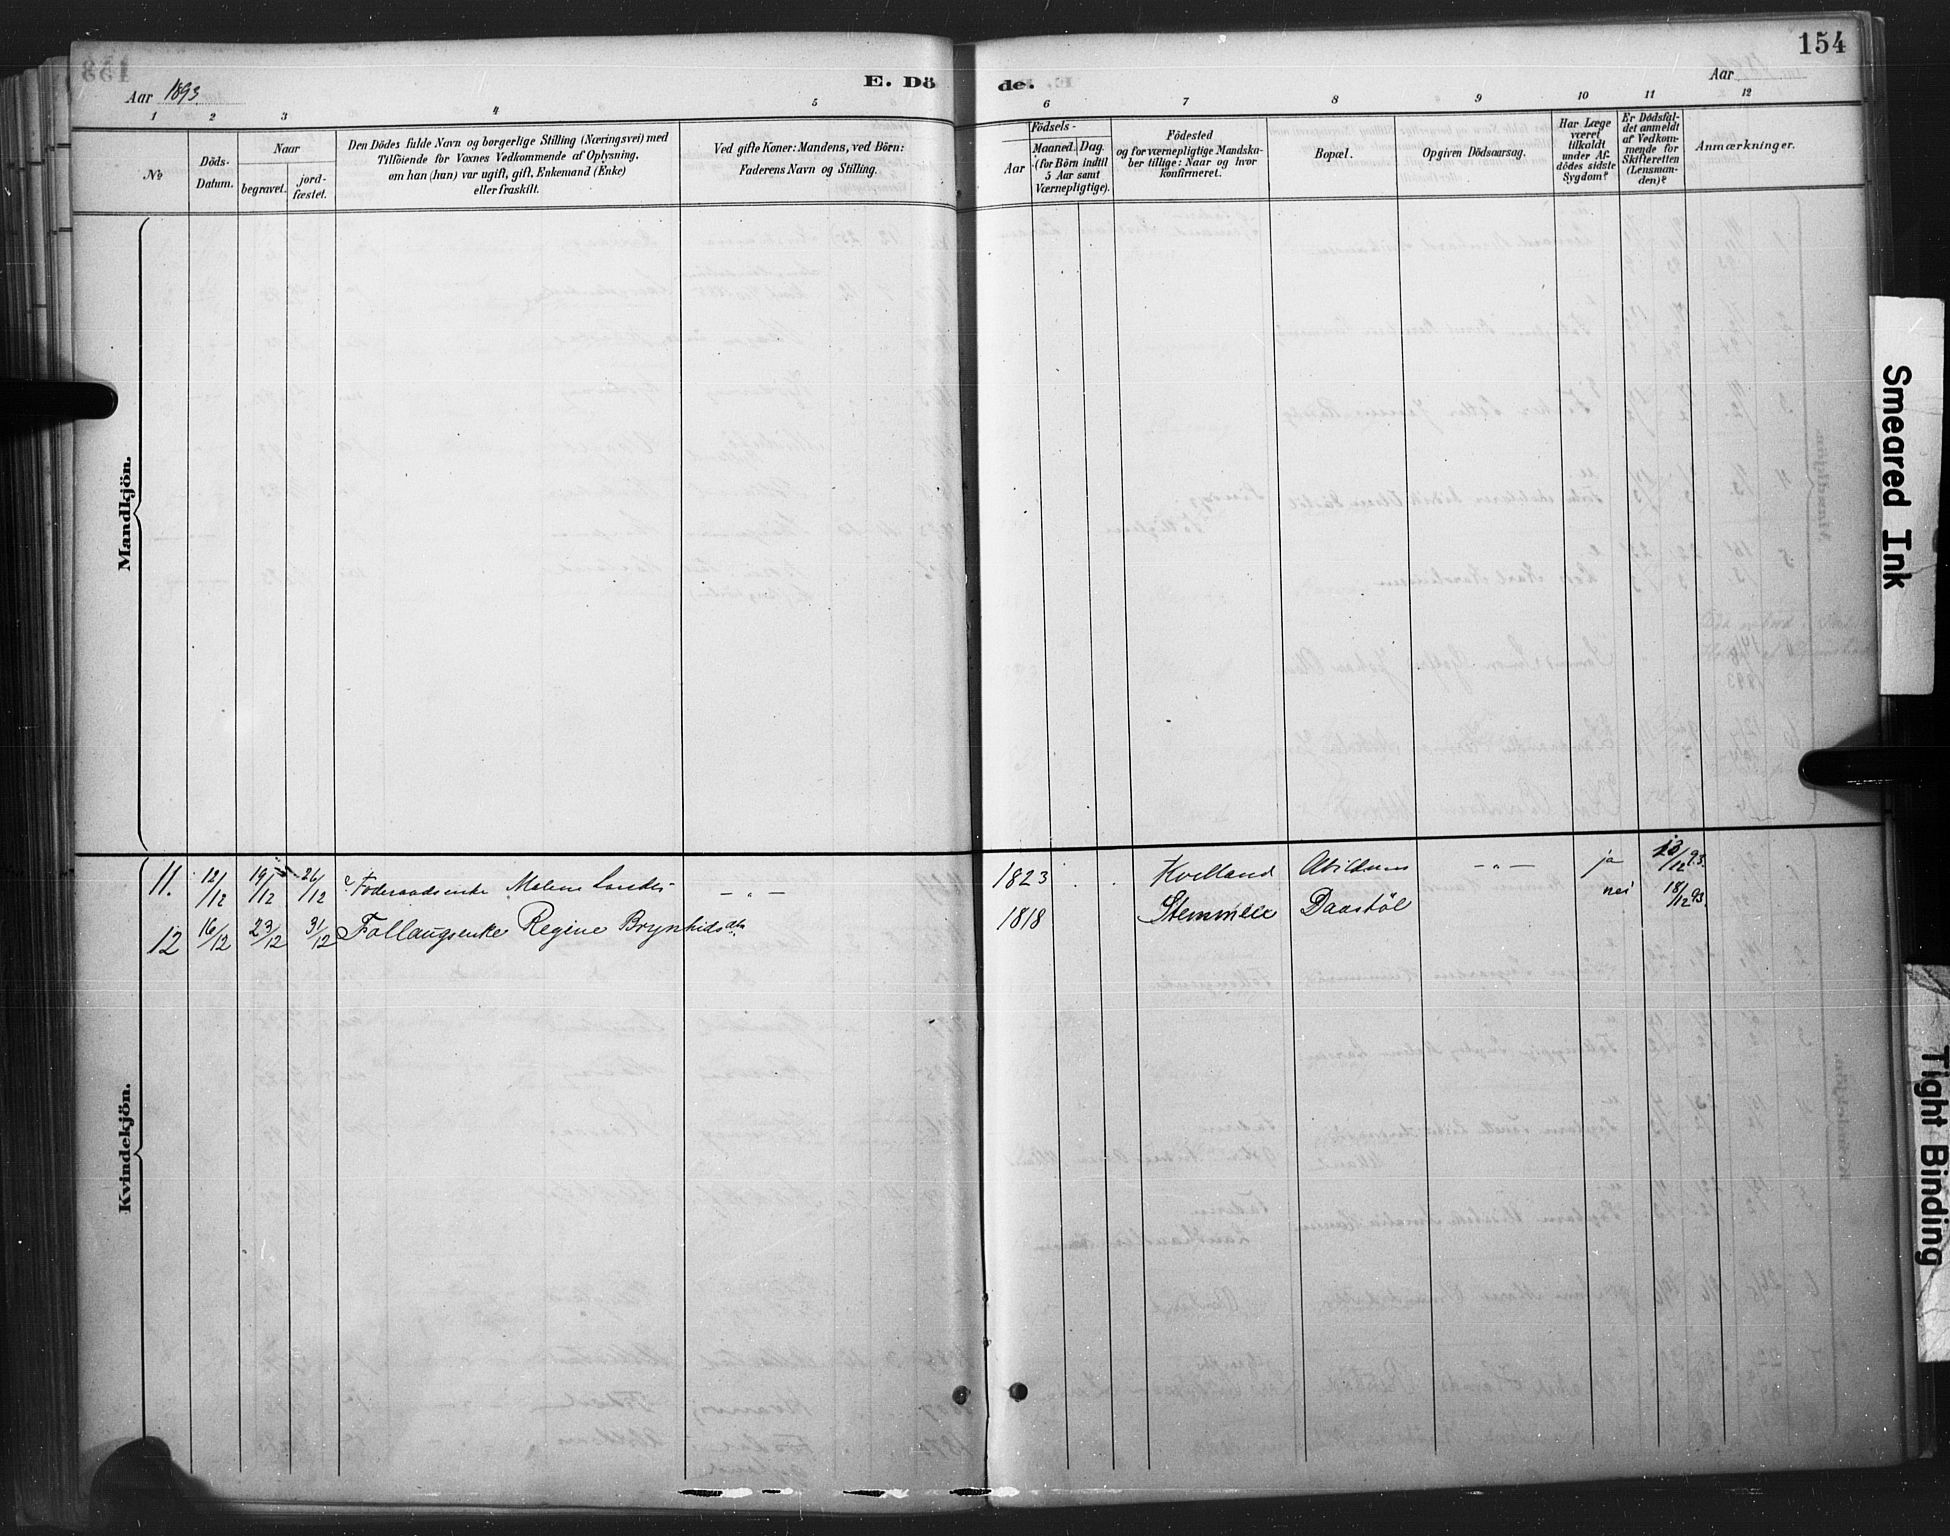 154
E. Döde.
Aar 1893
Aar
1 2 3 4 5 6 7 8 9 10 11 12
№
Döds-Datum.
Naar
begravet.
jord-fæstet.
Den Dödes fulde Navn og borgerlige Stilling (Næringsvei) med
Tilföiende for Voxnes Vedkommende af Oplysning,
om han (hun) var ugift, gift, Enkemand (Enke)
eller fraskilt.
Ved gifte Koner: Mandens, ved Börn:
Faderens Navn og Stilling.
Födsels-
Aar
Maaned. Dag.
(for Börn indtil
5 Aar samt
Værnepligtige).
Födested
og for værnepligtige Mandska-
ber tillige: Naar og hvor
konfirmeret.
Bopæl.
Opgiven Dödsaarsag.
Har Læge
været
tilkaldt
under Af-
dödes sidste
Sygdom?
Er Dödsfal-
det anmeldt
af Vedkom-
mende for
Skifteretten
(Lensman-
den)?
Anmærkninger.
Mandkjön.
Kvindekjön.
11. 12/12 19/12 26/12 Föderaadsenke Malene Londes- — „ — 1823 Kvelland Abildsnes — „ — ja 13/12 93.
12 16/12 23/12 31/12 Follaugsenke Regine Brynhildsdtr. 1818 Stemmele Daastöl nei 18/12 93.
Smeared Ink
Tight Binding